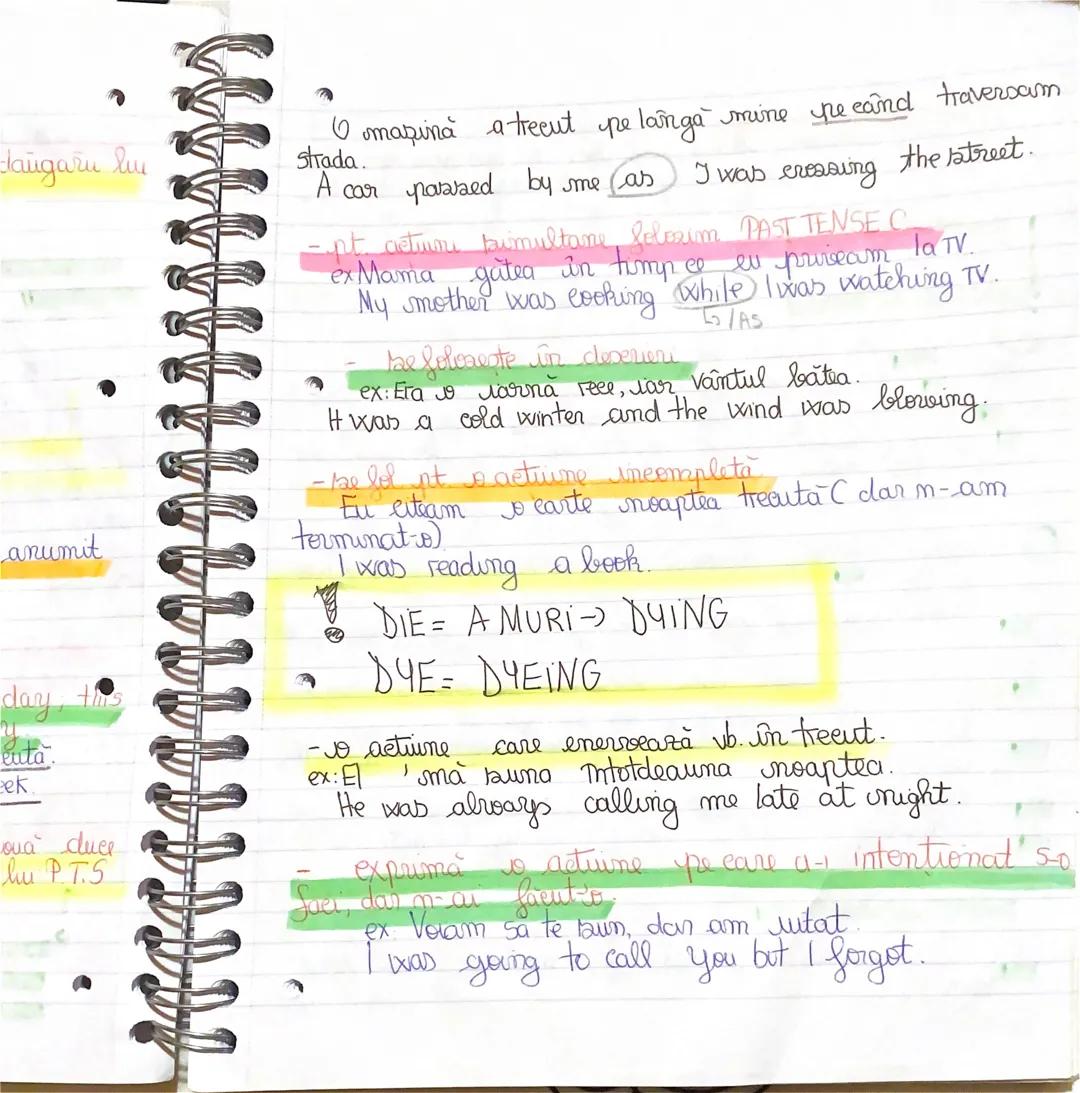 dăugării lui
anumit
day, this
y
cută.
eek.
ouă duce
lui P.T.S
O mașină a trecut pe lângă mine pe când traversam
strada.
A car passed by me as I was crossing the street.
- pt. acțiuni simultane folosim PAST TENSE C
ex Mama gătea în timp ce eu priveam la TV.
My mother was cooking while I was watching TV.
↳/AS
- se folosește în descrieri
ex: Era o iarnă rece, iar vântul bătea.
It was a cold winter and the wind was blowing.
- se fol pt o acțiune incompletă
Eu citeam o carte noaptea trecută (dar n-am
terminat-o)
I was reading a book.
! DIE = A MURI → DYING
DYE = DYEING
- o acțiune care enervează vb. în trecut.
ex: El mă suna întotdeauna noaptea.
He was always calling me late at night.
- exprimă o acțiune pe care a-i intenționat s-o
faci, dar n-ai făcut-o.
ex: Voiam să te sun, dar am uitat.
I was going to call you but I forgot.